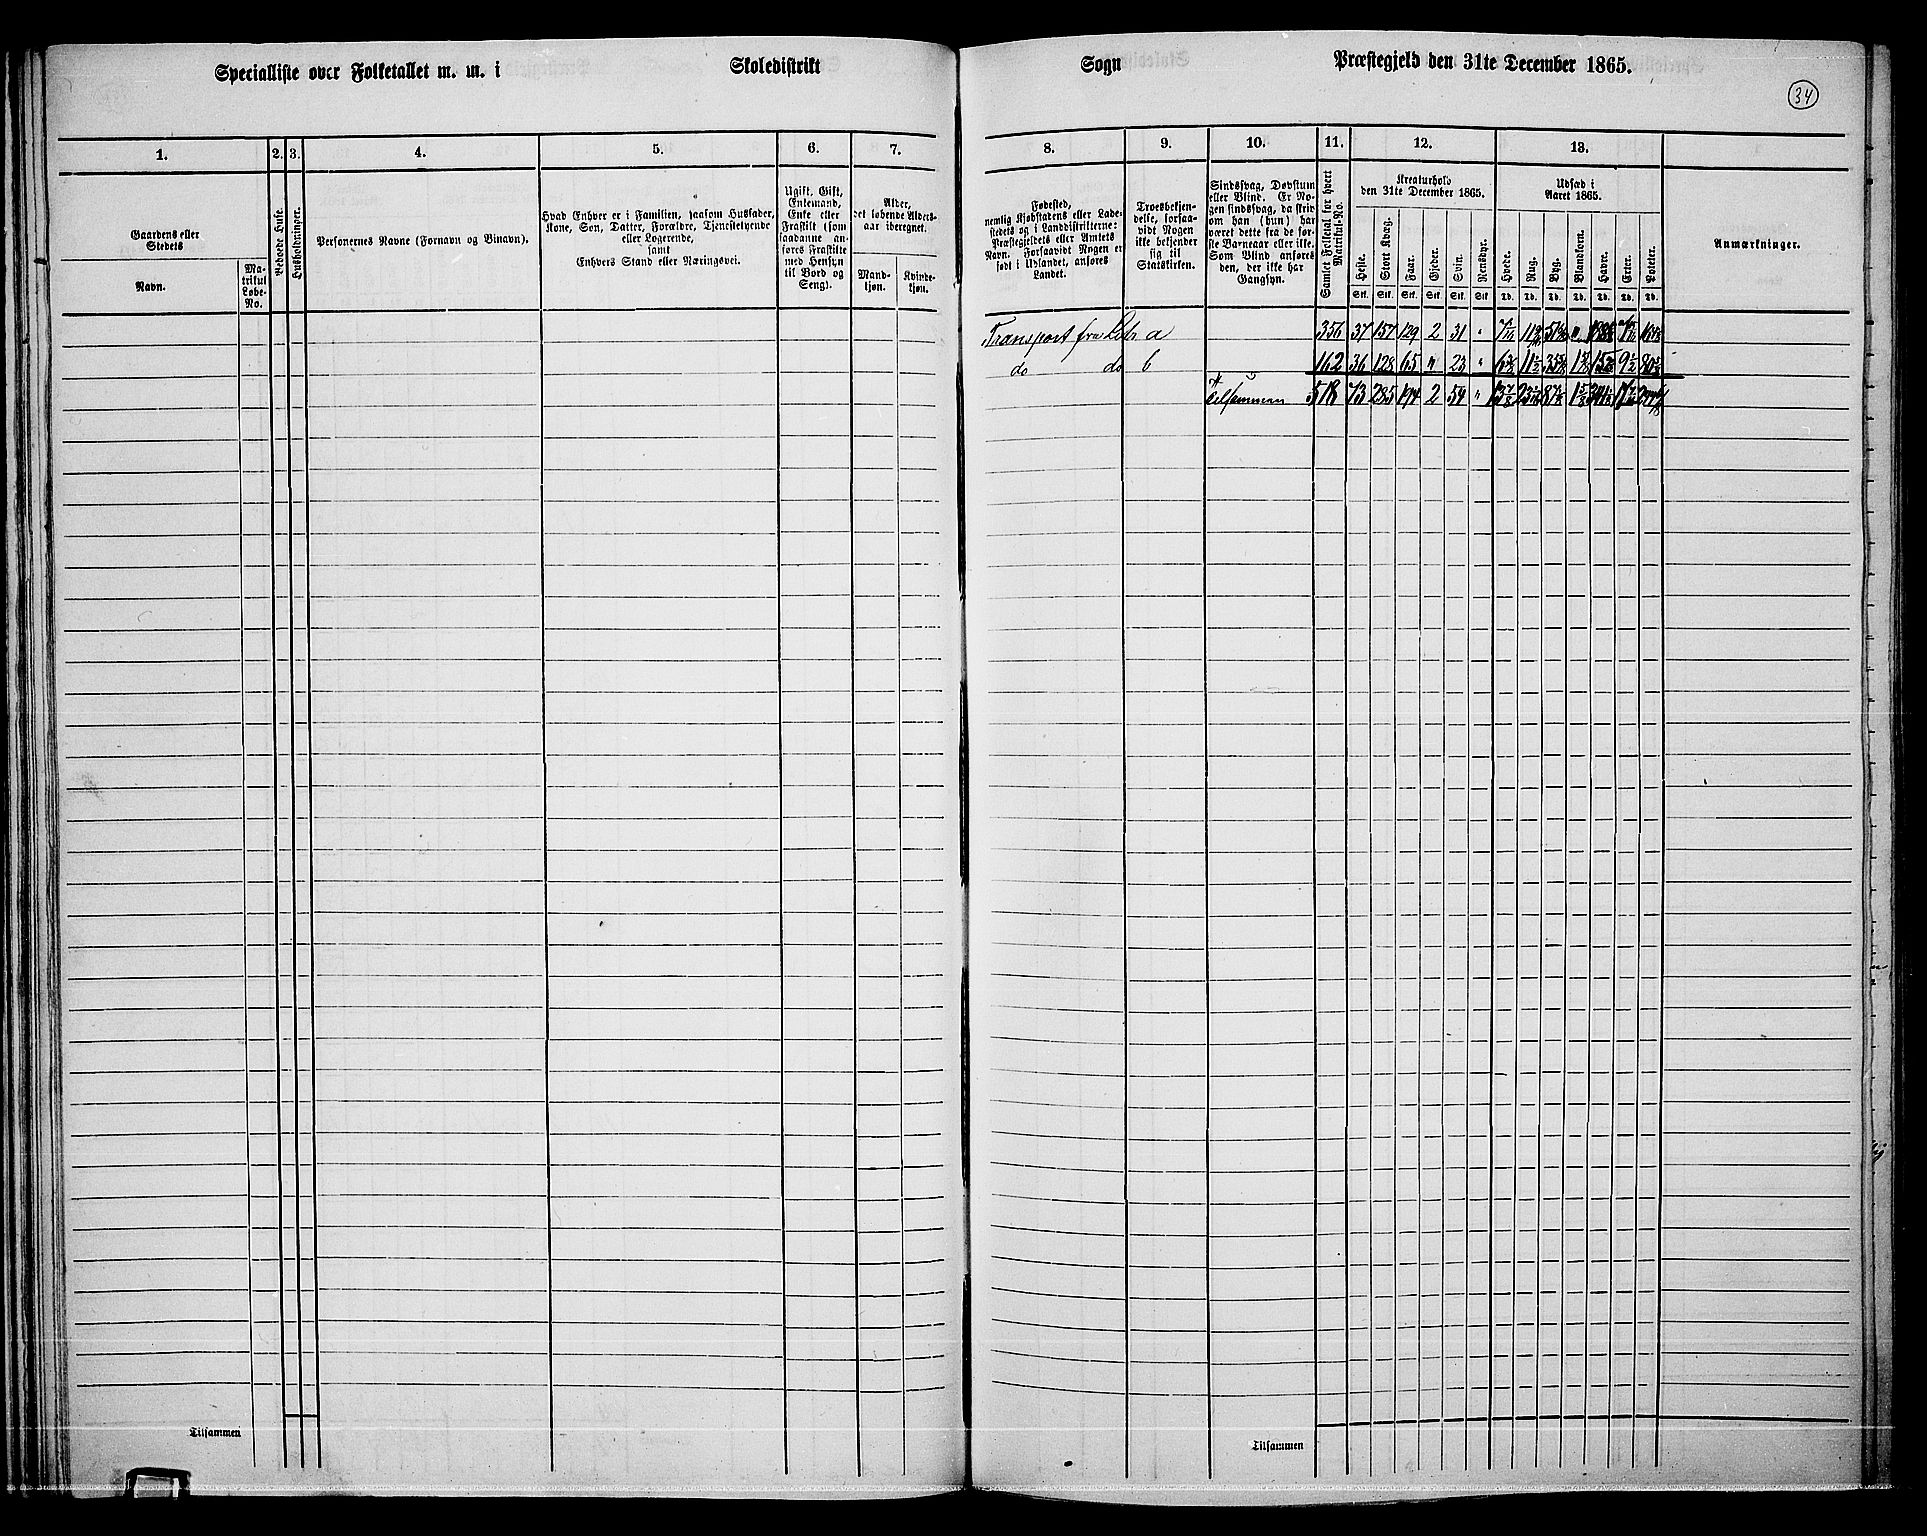 Specialliste over Folketallet m. m. i Skoledistrikt Sogn Præstegjeld den 31te December 1865.
34
1. 2. 3. 4. 5. 6. 7. 8. 9. 10. 11. 12. 13.
Gaardens eller Stedets
Navn.
Matrikul Løbe-No.
Beboede Huse.
Husholdninger.
Personernes Navne (Fornavn og Binavn).
Hvad Enhver er i Familien, saasom Husfader,
Kone, Søn, Datter, Forældre, Tjenestetyende
eller Logerende,
samt
Enhvers Stand eller Næringsvei.
Ugift, Gift,
Enkemand,
Enke eller
Fraskilt (som
saadanne anføres
Fraskilte
med Hensyn
til Bord og
Seng).
Alder,
det løbende Aldersaar
iberegnet.
Mandkjøn.
Kvindekjøn.
Fødested,
nemlig Kjøbstadens eller Ladestedets
og i Landdistrikterne:
Præstegjeldets eller Amtets
Navn. Forsaavidt Nogen er
født i Udlandet, anføres
Landet.
Troesbekjendelse,
forsaavidt
Nogen
ikke bekjender
sig til
Statskirken.
Sindssvag, Døvstum
eller Blind. Er Nogen
sindssvag, da skrives
om han (hun) har
været dette fra de første
Barneaar eller ikke.
Som Blind anføres
den, der ikke har
Gangsyn.
Samlet Folketal for hvert
Matrikul-No.
Kreaturhold
den 31te December 1865.
Heste.
Stort Kvæg.
Faar.
Gjeder.
Svin.
Rensdyr.
Stk. Stk. Stk. Stk. Stk. Stk
Udsæd i
Aaret 1865.
Hvede.
Rug.
Byg.
Blandkorn.
Havre.
Erter.
Poteter.
Td. Td. Td. Td. Td. Td. Td.
Anmærkninger.
Transport fra Litr a 356 37 157 129 2 31 "
do do b 162 36 128 65 " 23 "
Tilsammen 518 73 285 194 2 54 "
Tilsammen
Tilsammen